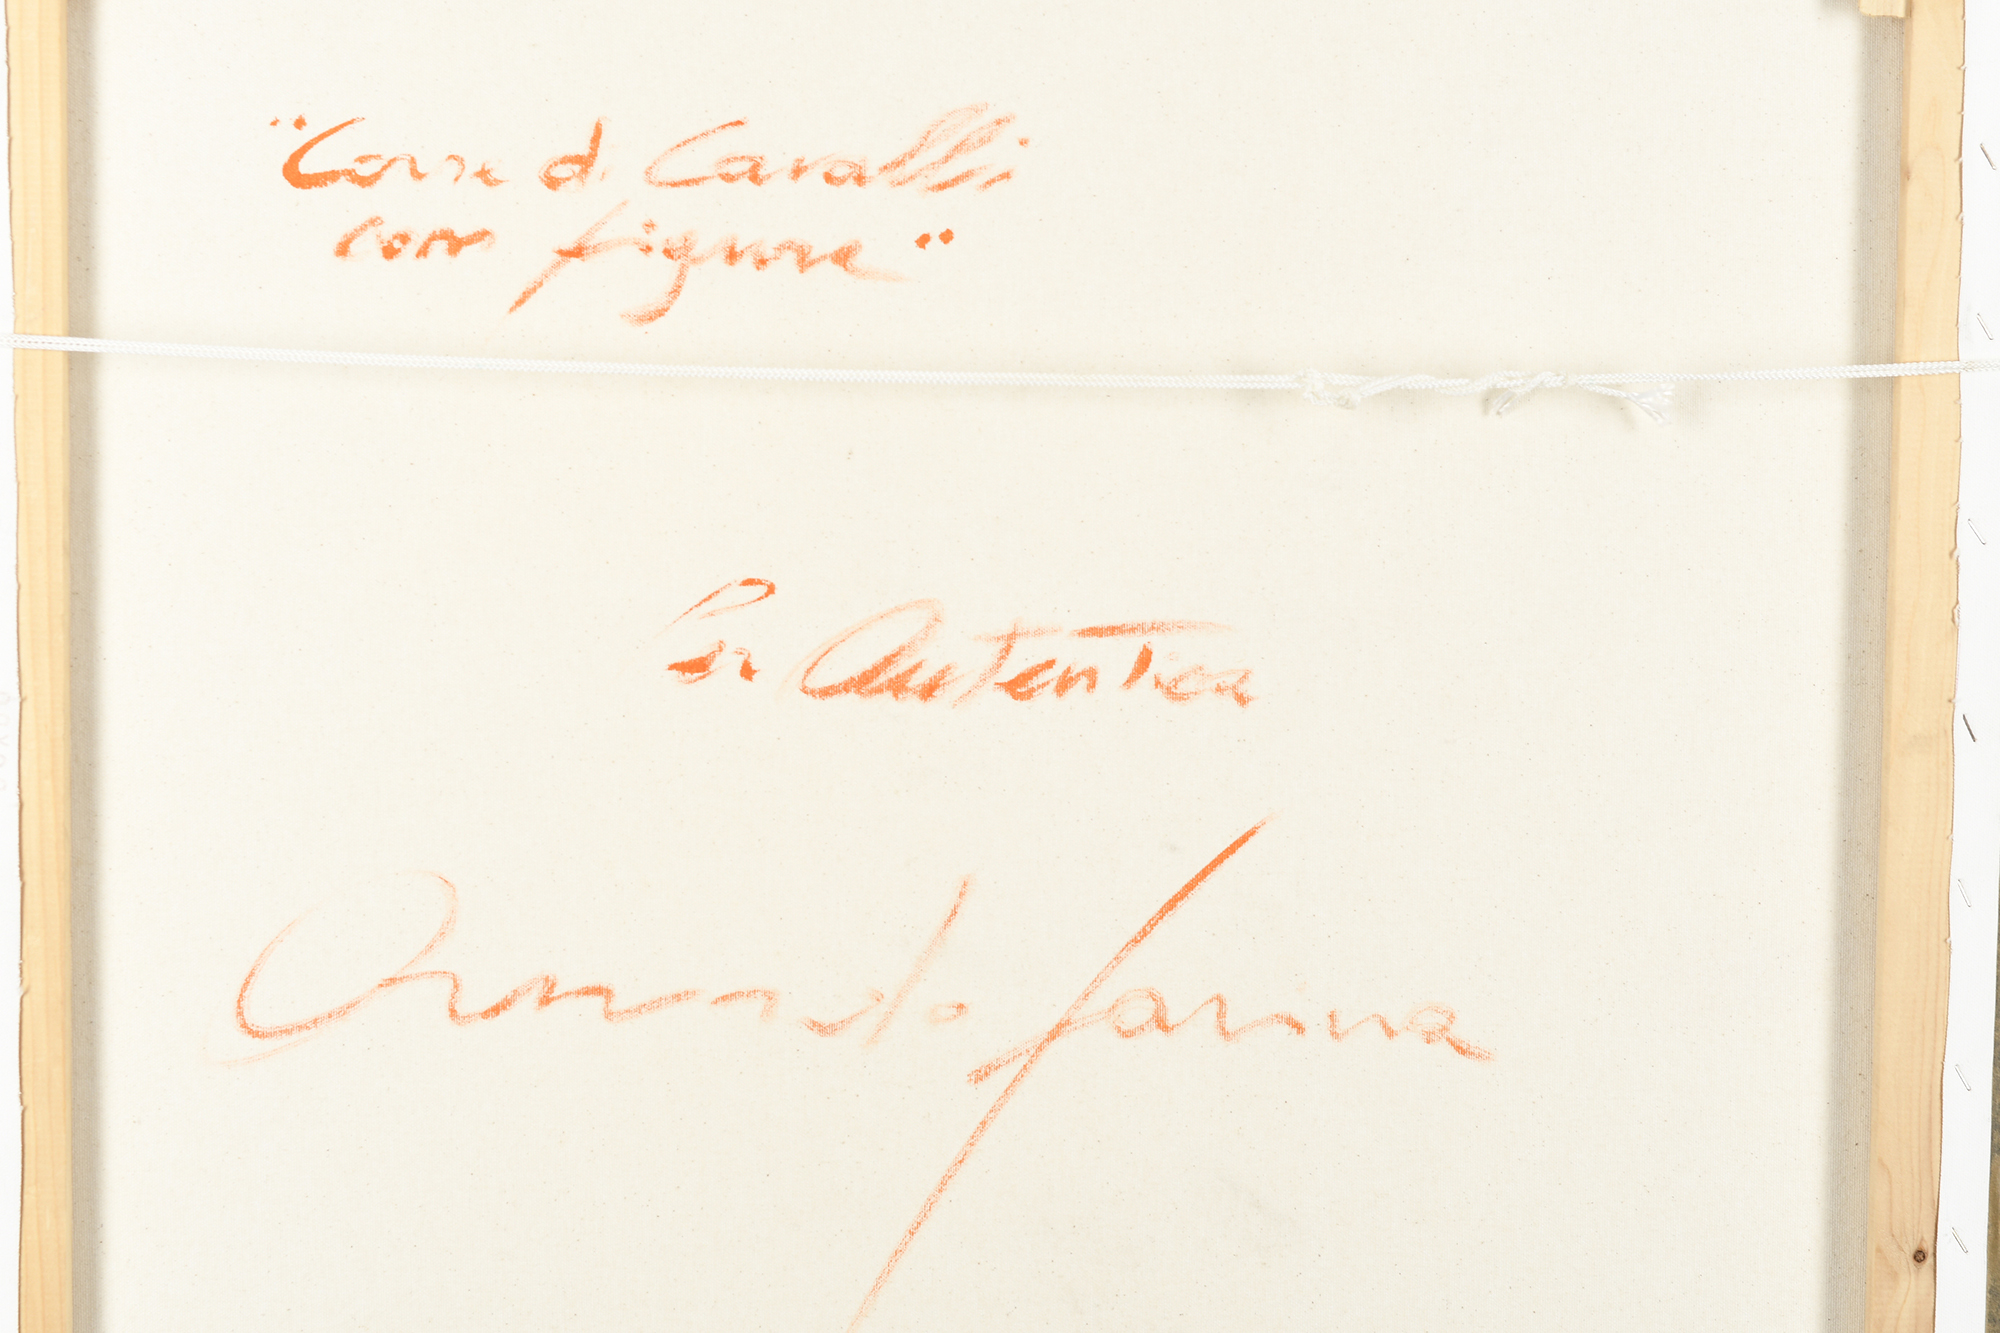 "Corse di Cavalli
con figure"
Per Autentica
Armando Farina